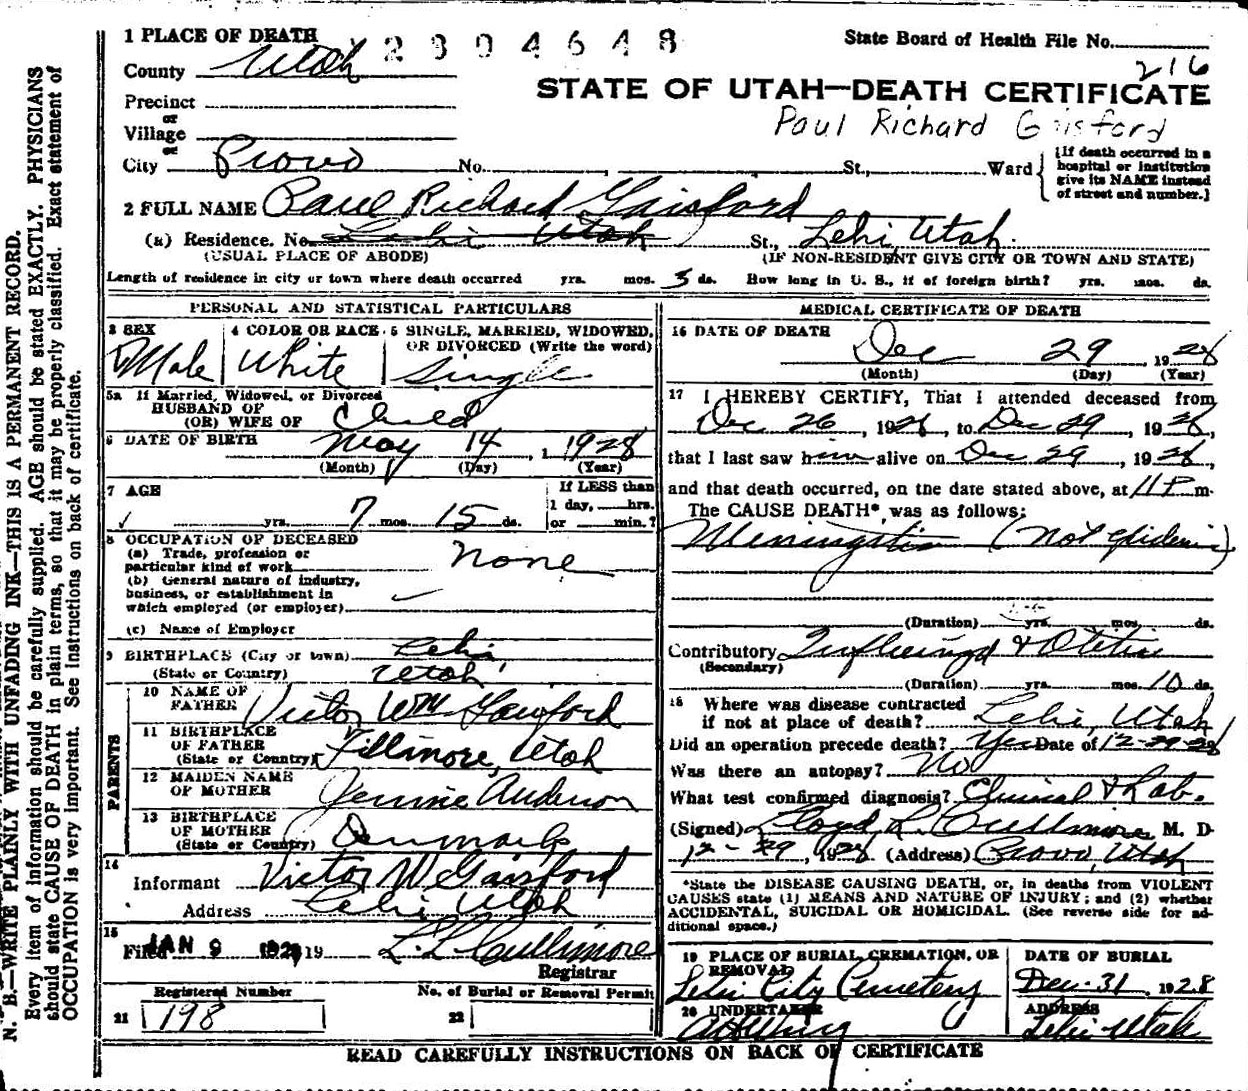 1 PLACE OF DEATH 2304648 State Board of Health File No.
County Utah 216
STATE OF UTAH—DEATH CERTIFICATE
Precinct
or
Paul Richard Gaisford
Village
or
City Provo No. St., Ward {If death occurred in a hospital or institution give its NAME instead of street and number.}
2 FULL NAME Paul Richard Gaisford
(a) Residence. No. Lehi Utah St., Lehi, Utah.
(USUAL PLACE OF ABODE) (IF NON-RESIDENT GIVE CITY OR TOWN AND STATE)
Length of residence in city or town where death occurred yrs. mos. 3 ds. How long in U. S., if of foreign birth? yrs. mos. ds.
PERSONAL AND STATISTICAL PARTICULARS
3 SEX 4 COLOR OR RACE 5 SINGLE, MARRIED, WIDOWED,
OR DIVORCED (Write the word)
Male White Single
5a If Married, Widowed, or Divorced
HUSBAND OF
(OR) WIFE OF Child
6 DATE OF BIRTH May 14, 1928
(Month) (Day) (Year)
7 AGE If LESS than
1 day, hrs.
yrs. 7 mos. 15 ds. or min.?
8 OCCUPATION OF DECEASED
(a) Trade, profession or
particular kind of work none
(b) General nature of industry,
business, or establishment in
which employed (or employer)
(c) Name of Employer
9 BIRTHPLACE (City or town) Lehi
(State or Country) Utah
PARENTS
10 NAME OF
FATHER Victor Wm Gaisford
11 BIRTHPLACE
OF FATHER
(State or Country) Fillmore, Utah
12 MAIDEN NAME
OF MOTHER Jennie Anderson
13 BIRTHPLACE
OF MOTHER
(State or Country) Denmark
14
Informant Victor W Gaisford
Address Lehi Utah
15
Filed JAN 9 1929 19 L. L. Cullimore
Registrar
Registered Number No. of Burial or Removal Permit
21 198 22
MEDICAL CERTIFICATE OF DEATH
16 DATE OF DEATH
Dec 29 1928
(Month) (Day) (Year)
17 I HEREBY CERTIFY, That I attended deceased from
Dec 26, 1928, to Dec 29, 1928,
that I last saw him alive on Dec 29, 1928,
and that death occurred, on the date stated above, at 11 P m.
The CAUSE DEATH*, was as follows:
Meningitis (not epidemic)
(Duration) yrs. mos. ds.
Contributory Influenza & Otitis
(Secondary)
(Duration) yrs. mos. 10 ds.
18 Where was disease contracted
if not at place of death? Lehi, Utah
Did an operation precede death? Yes Date of 12-29-28
Was there an autopsy? No
What test confirmed diagnosis? Clinical & Lab.
(Signed) Lloyd L. Cullimore M. D.
12-29, 1928 (Address) Provo, Utah
*State the DISEASE CAUSING DEATH, or, in deaths from VIOLENT
CAUSES state (1) MEANS AND NATURE OF INJURY; and (2) whether
ACCIDENTAL, SUICIDAL OR HOMICIDAL. (See reverse side for ad-
ditional space.)
19 PLACE OF BURIAL, CREMATION, OR
REMOVAL
Lehi City Cemetery
DATE OF BURIAL
Dec. 31, 1928
20 UNDERTAKER
ADDRESS
Lehi Utah
READ CAREFULLY INSTRUCTIONS ON BACK OF CERTIFICATE
N. B.—WRITE PLAINLY WITH UNFADING INK—THIS IS A PERMANENT RECORD.
Every item of information should be carefully supplied. AGE should be stated EXACTLY. PHYSICIANS
should state CAUSE OF DEATH in plain terms, so that it may be properly classified. Exact statement of
OCCUPATION is very important. See instructions on back of certificate.